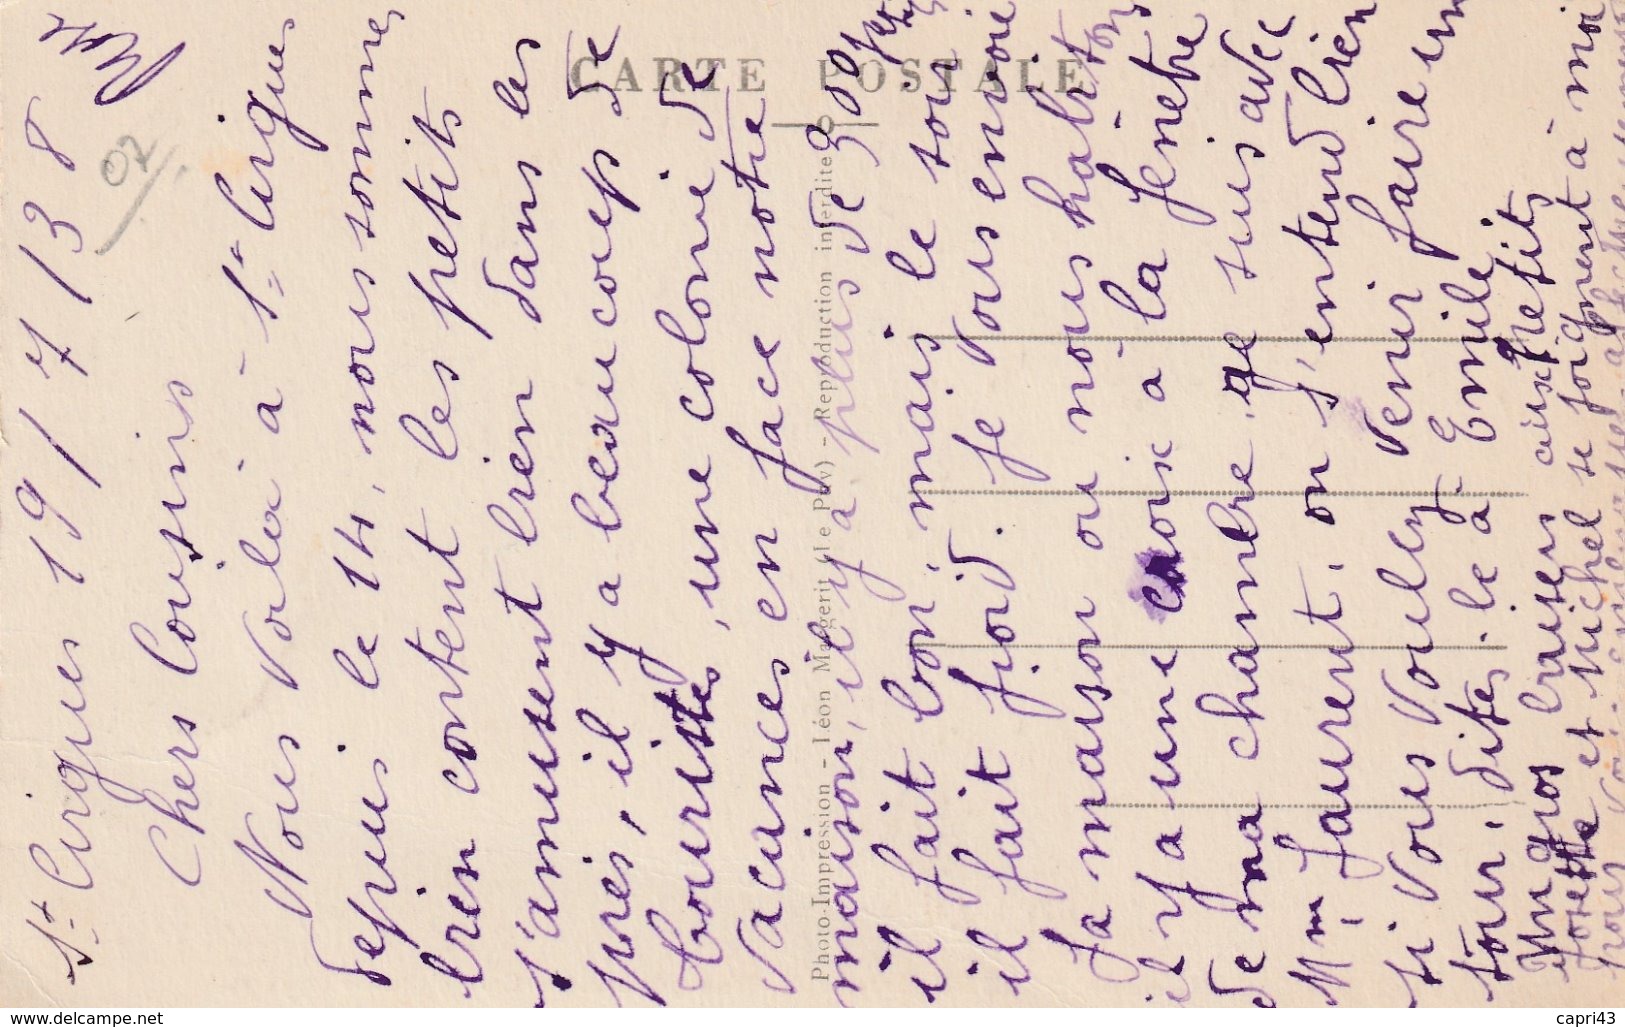 St Cirgues 19/7/38
Chers Cousins
Nous voilà à St Cirgues
depuis le 14, nous sommes
bien content les petits
s'amusent bien dans les
près, il y a beaucoup de
touristes, une colonie de
vacances en face notre
maison, il y a plus de 300
il fait bon, mais le soir
il fait froid. Je vous envoie
la maison ou nous habitons
il y a une croix à la fenêtre
de ma chambre, je suis avec
Mme Laurent, on s'entend bien
si vous voully venir faire un
tour, dites-le à Emile
un gros baiser aux petits
Josette et Michel se joignent à moi
pour vous
Rose
02
CARTE POSTALE
Photo-Impression - Léon Margerit (Le Puy) - Reproduction interdite
www.delcampe.net
capri43